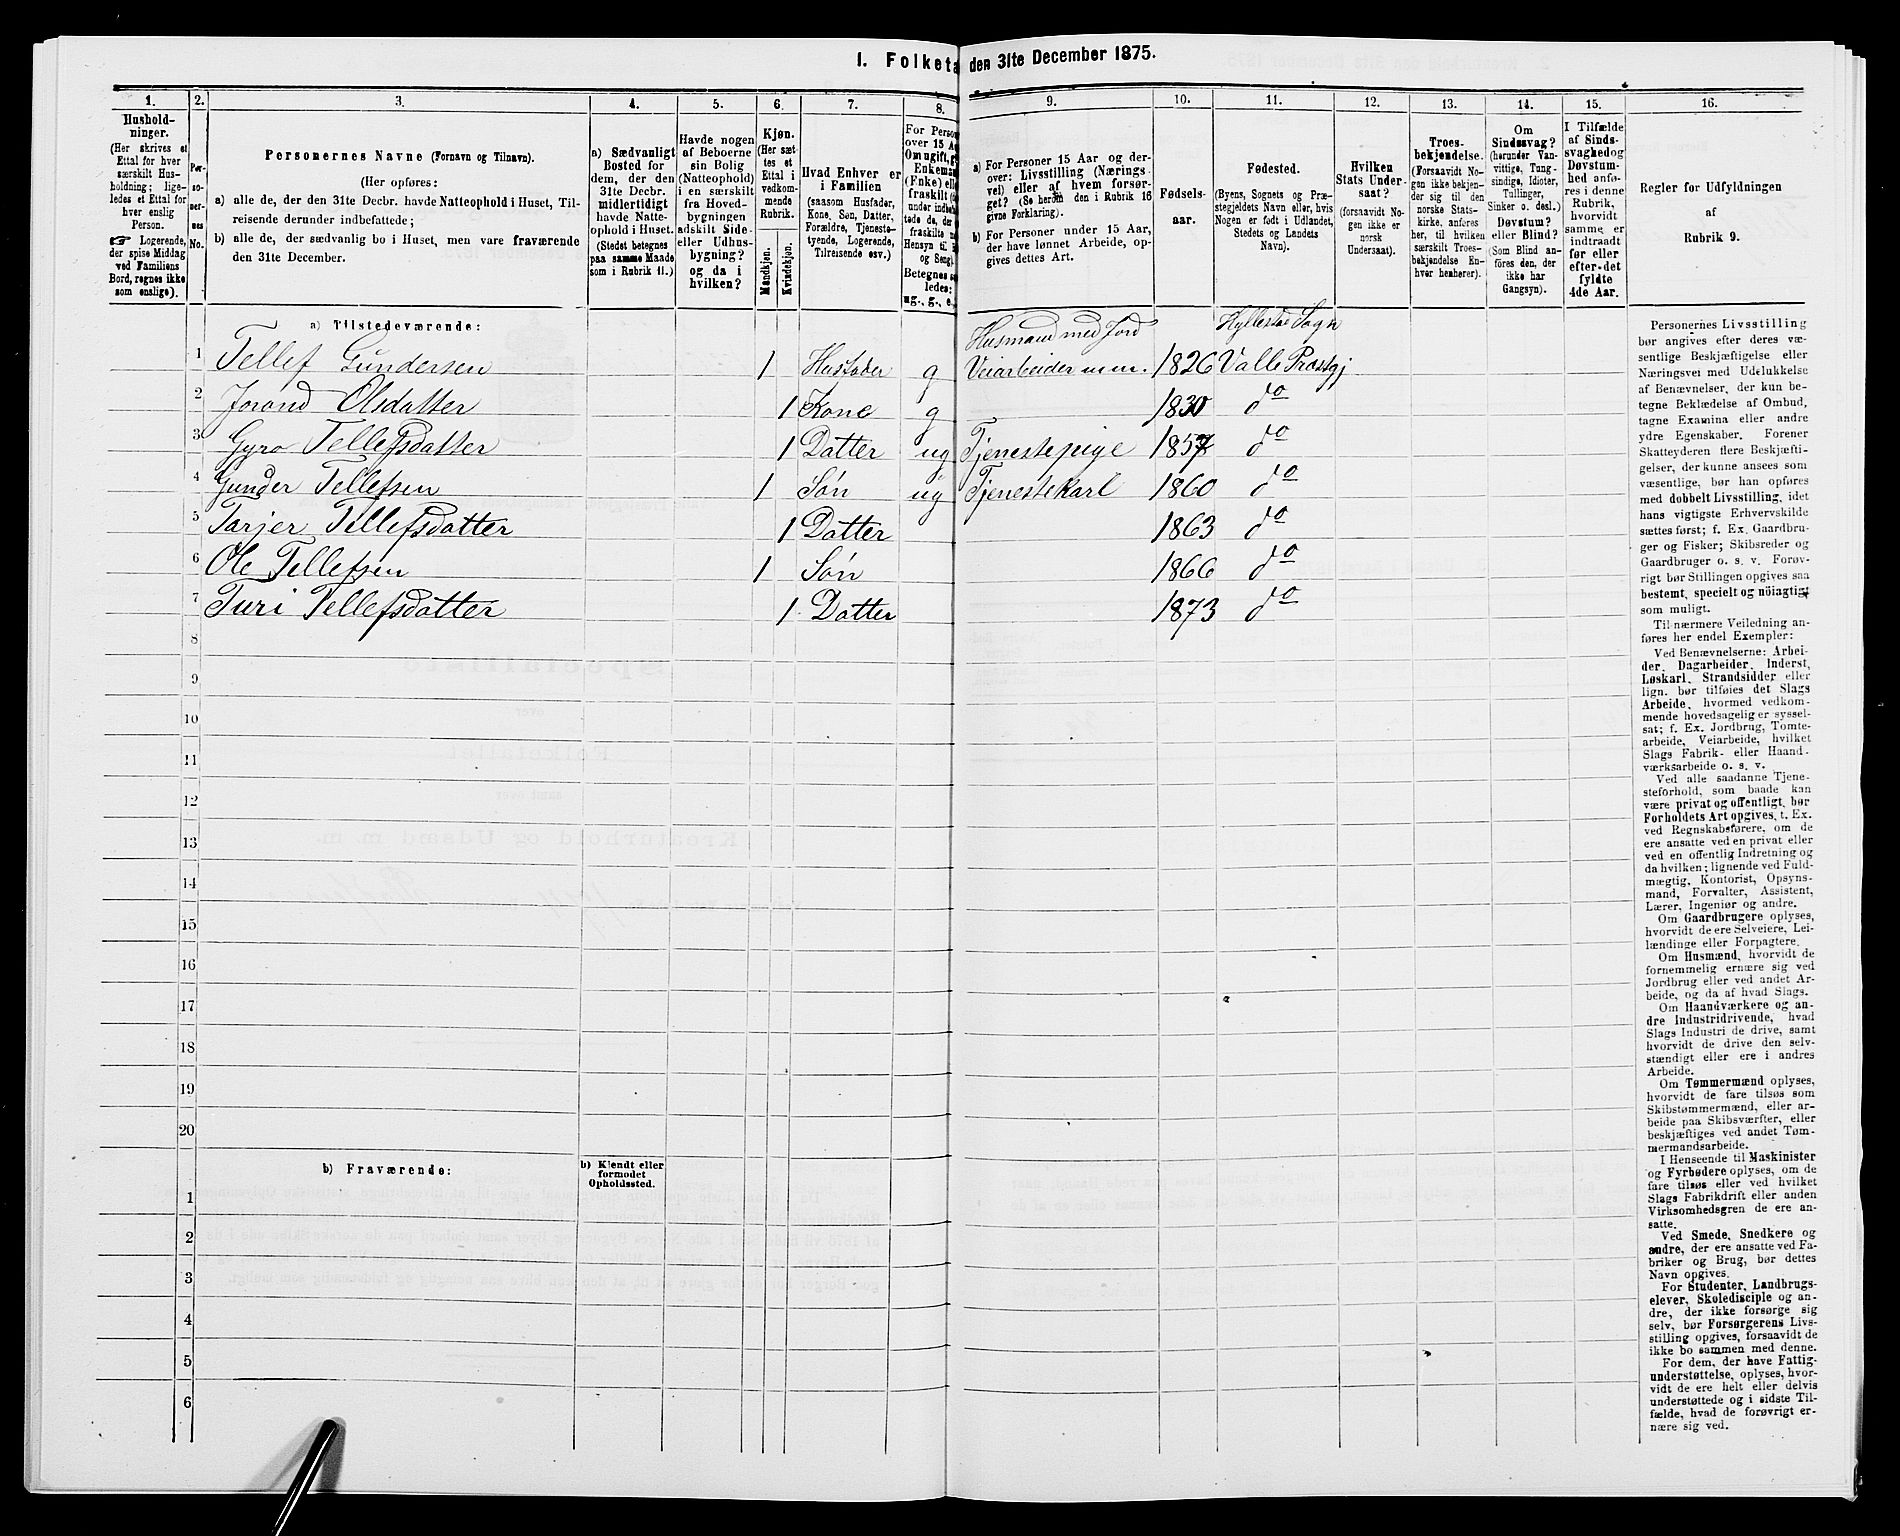 1. Folketa den 31te December 1875.
1. 2. 3. 4. 5. 6. 7. 8. 9. 10. 11. 12. 13. 14. 15. 16.
Hushold-
ninger.
(Her skrives et
Ettal for hver
særskilt Hus-
holdning; lige-
ledes et Ettal for
hver enslig
Person.
☞ Logerende,
der spise Middag
ved Familiens
Bord, regnes ikke
som enslige).
Per-
so-
ner-
nes
No.
Personernes Navne (Fornavn og Tilnavn).
(Her opføres:
a) alle de, der den 31te Decbr. havde Natteophold i Huset, Til-
reisende derunder indbefattede;
b) alle de, der sædvanlig bo i Huset, men vare fraværende
den 31te December.
a) Sædvanligt
Bosted for
dem, der den
31te Decbr.
midlertidigt
havde Natte-
ophold i Huset.
(Stedet betegnes
paa samme Maade
som i Rubrik 11.)
Havde nogen
af Beboerne
sin Bolig
(Natteophold)
i en særskilt
fra Hoved-
bygningen
adskilt Side-
eller Udhus-
bygning?
og da i
hvilken?
Kjøn.
(Her sæt-
tes et
Ettal i
vedkom-
mende
Rubrik.
Mandkjøn.
Kvindekjøn.
Hvad Enhver er
i Familien
(saasom Husfader,
Kone, Søn, Datter,
Forældre, Tjeneste-
tyende, Logerende,
Tilreisende osv.)
For Person
over 15 Aa
Om ugift, g
Enkeman
(Enke) ell
fraskilt
under indbe
tede de, der
fraskilte
Hensyn til
og Seng)
Betegnes s
ledes:
ug., g., e.,
a) For Personer 15 Aar og der-
over: Livsstilling (Nærings-
vei) eller af hvem forsør-
get? (Se herom den i Rubrik 16
givne Forklaring).
b) For Personer under 15 Aar,
der have lønnet Arbeide, op-
gives dettes Art.
Fødsels-
aar.
Fødested.
(Byens, Sognets og Præ-
stegjeldets Navn eller, hvis
Nogen er født i Udlandet,
Stedets og Landets
Navn).
Hvilken
Stats Under-
saat?
(forsaavidt No-
gen ikke er
norsk
Undersaat).
Troes-
bekjendelse.
(Forsaavidt No-
gen ikke bekjen-
der sig til den
norske Stats-
kirke, anføres
her, til hvilken
særskilt Troes-
bekjendelse En-
hver henhører).
Om
Sindssvag?
(herunder Van-
vittige, Tung-
sindige, Idioter,
Tullinger,
Sinker o. desl.)
Døvstum?
eller Blind?
(Som Blind an-
føres den, der
ikke har
Gangsyn).
I Tilfælde
af Sinds-
svaghed og
Døvstum-
hed anfø-
res i denne
Rubrik,
hvorvidt
samme er
indtraadt
før eller
efter det
fyldte
4de Aar.
Regler for Udfyldningen
af
Rubrik 9.
a) Tilstedeværende:
Husmand med Jord Hyllestad Sogn
1 Tellef Gundersen 1 Husfader g Veiarbeider m.m. 1826 Valle Præstgj
2 Jorand Olsdatter 1 Kone g 1830 do
3 Gyro Tellefsdatter 1 Datter ug Tjenestepige 1857 do
4 Gunder Tellefsen 1 Søn ug Tjenestekarl 1860 do
5 Tarjer Tellefsdatter 1 Datter 1863 do
6 Ole Tellefsen 1 Søn 1866 do
7 Turi Tellefsdatter 1 Datter 1873 do
8
9
10
11
12
13
14
15
16
17
18
19
20
b) Fraværende: b) Kjendt eller
formodet
Opholdssted.
1
2
3
4
5
6
Personernes Livsstilling
bør angives efter deres væ-
sentlige Beskjæftigelse eller
Næringsvei med Udelukkelse
af Benævnelser, der kun be-
tegne Beklædelse af Ombud,
tagne Examina eller andre
ydre Egenskaber. Forener
Skatteyderen flere Beskjæfti-
gelser, der kunne ansees som
væsentlige, bør han opføres
med dobbelt Livsstilling, idet
hans vigtigste Erhvervskilde
sættes først; f. Ex. Gaardbru-
ger og Fisker; Skibsreder og
Gaardbruger o. s. v. Forøv-
rigt bør Stillingen opgives saa
bestemt, specielt og nöiagtigt
som muligt.
Til nærmere Veiledning an-
føres her endel Exempler:
Ved Benævnelserne: Arbei-
der, Dagarbeider, Inderst,
Løskarl, Strandsidder eller
lign. bør tilføies det Slags
Arbeide, hvormed vedkom-
mende hovedsagelig er syssel-
sat; f. Ex. Jordbrug, Tomte-
arbeide, Veiarbeide, hvilket
Slags Fabrik- eller Haand-
værksarbeide o. s. v.
Ved alle saadanne Tjene-
steforhold, som baade kan
være privat og offentligt, bør
Forholdets Art opgives, t. Ex.
ved Regnskabsførere, om de
ere ansatte ved en privat eller
ved en offentlig Indretning og
da hvilken; lignende ved Fuld-
mægtig, Kontorist, Opsyns-
mand, Forvalter, Assistent,
Lærer, Ingeniør og andre.
Om Gaardbrugere oplyses,
hvorvidt de ere Selveiere, Lei-
lændinge eller Forpagtere.
Om Husmænd, hvorvidt de
fornemmelig ernære sig ved
Jordbrug eller ved andet Ar-
beide, og da af hvad Slags.
Om Haandværkere og an-
dre Industridrivende, hvad
Slags Industri de drive, samt
hvorvidt de drive den selv-
stændigt eller ere i andres
Arbeide.
Om Tømmermænd oplyses,
hvorvidt de fare tilsøs som
Skibstømmermænd, eller ar-
beide paa Skibsværfter, eller
beskjæftiges ved andet Tøm-
mermandsarbeide.
I Henseende til Maskinister
og Fyrbødere oplyses, om de
fare tilsøs eller ved hvilket
Slags Fabrikdrift eller anden
Virksomhedsgren de ere an-
satte.
Ved Smede, Snedkere og
andre, der ere ansatte ved Fa-
briker og Brug, bør dettes
Navn opgives.
For Studenter, Landbrugs-
elever, Skoledisciple og an-
dre, der ikke forsørge sig
selv, bør Forsørgerens Livs-
stilling opgives, forsaavidt de
ikke bo sammen med denne.
For dem, der have Fattig-
understøttelse, oplyses, hvor-
vidt de ere helt eller delvis
understøttede og i sidste Til-
fælde, hvad de forøvrigt er-
nære sig ved.